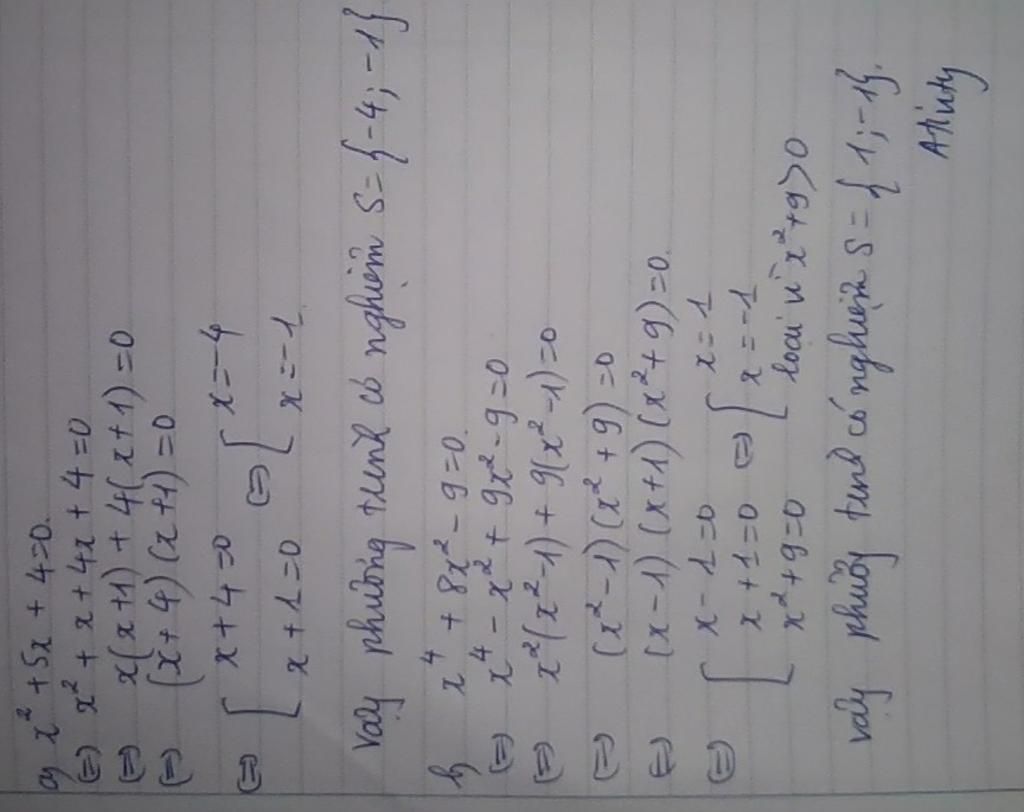 a) x² + 5x + 4 = 0.
⇔ x² + x + 4x + 4 = 0
⇔ x(x+1) + 4(x+1) = 0
⇔ (x+4)(x+1) = 0
⇔ [ x+4=0 ⇔ [ x=-4
x+1=0 x=-1
Vậy phương trình có nghiệm S={-4;-1}
b) x⁴ + 8x² - 9 = 0.
⇔ x⁴ - x² + 9x² - 9 = 0
⇔ x²(x²-1) + 9(x²-1) = 0
⇔ (x²-1)(x²+9) = 0
⇔ (x-1)(x+1)(x²+9) = 0.
⇔ [ x-1=0 x=1
x+1=0 ⇔ [ x=-1
x²+9=0 loại vì x²+9>0
Vậy phương trình có nghiệm S={1;-1}.